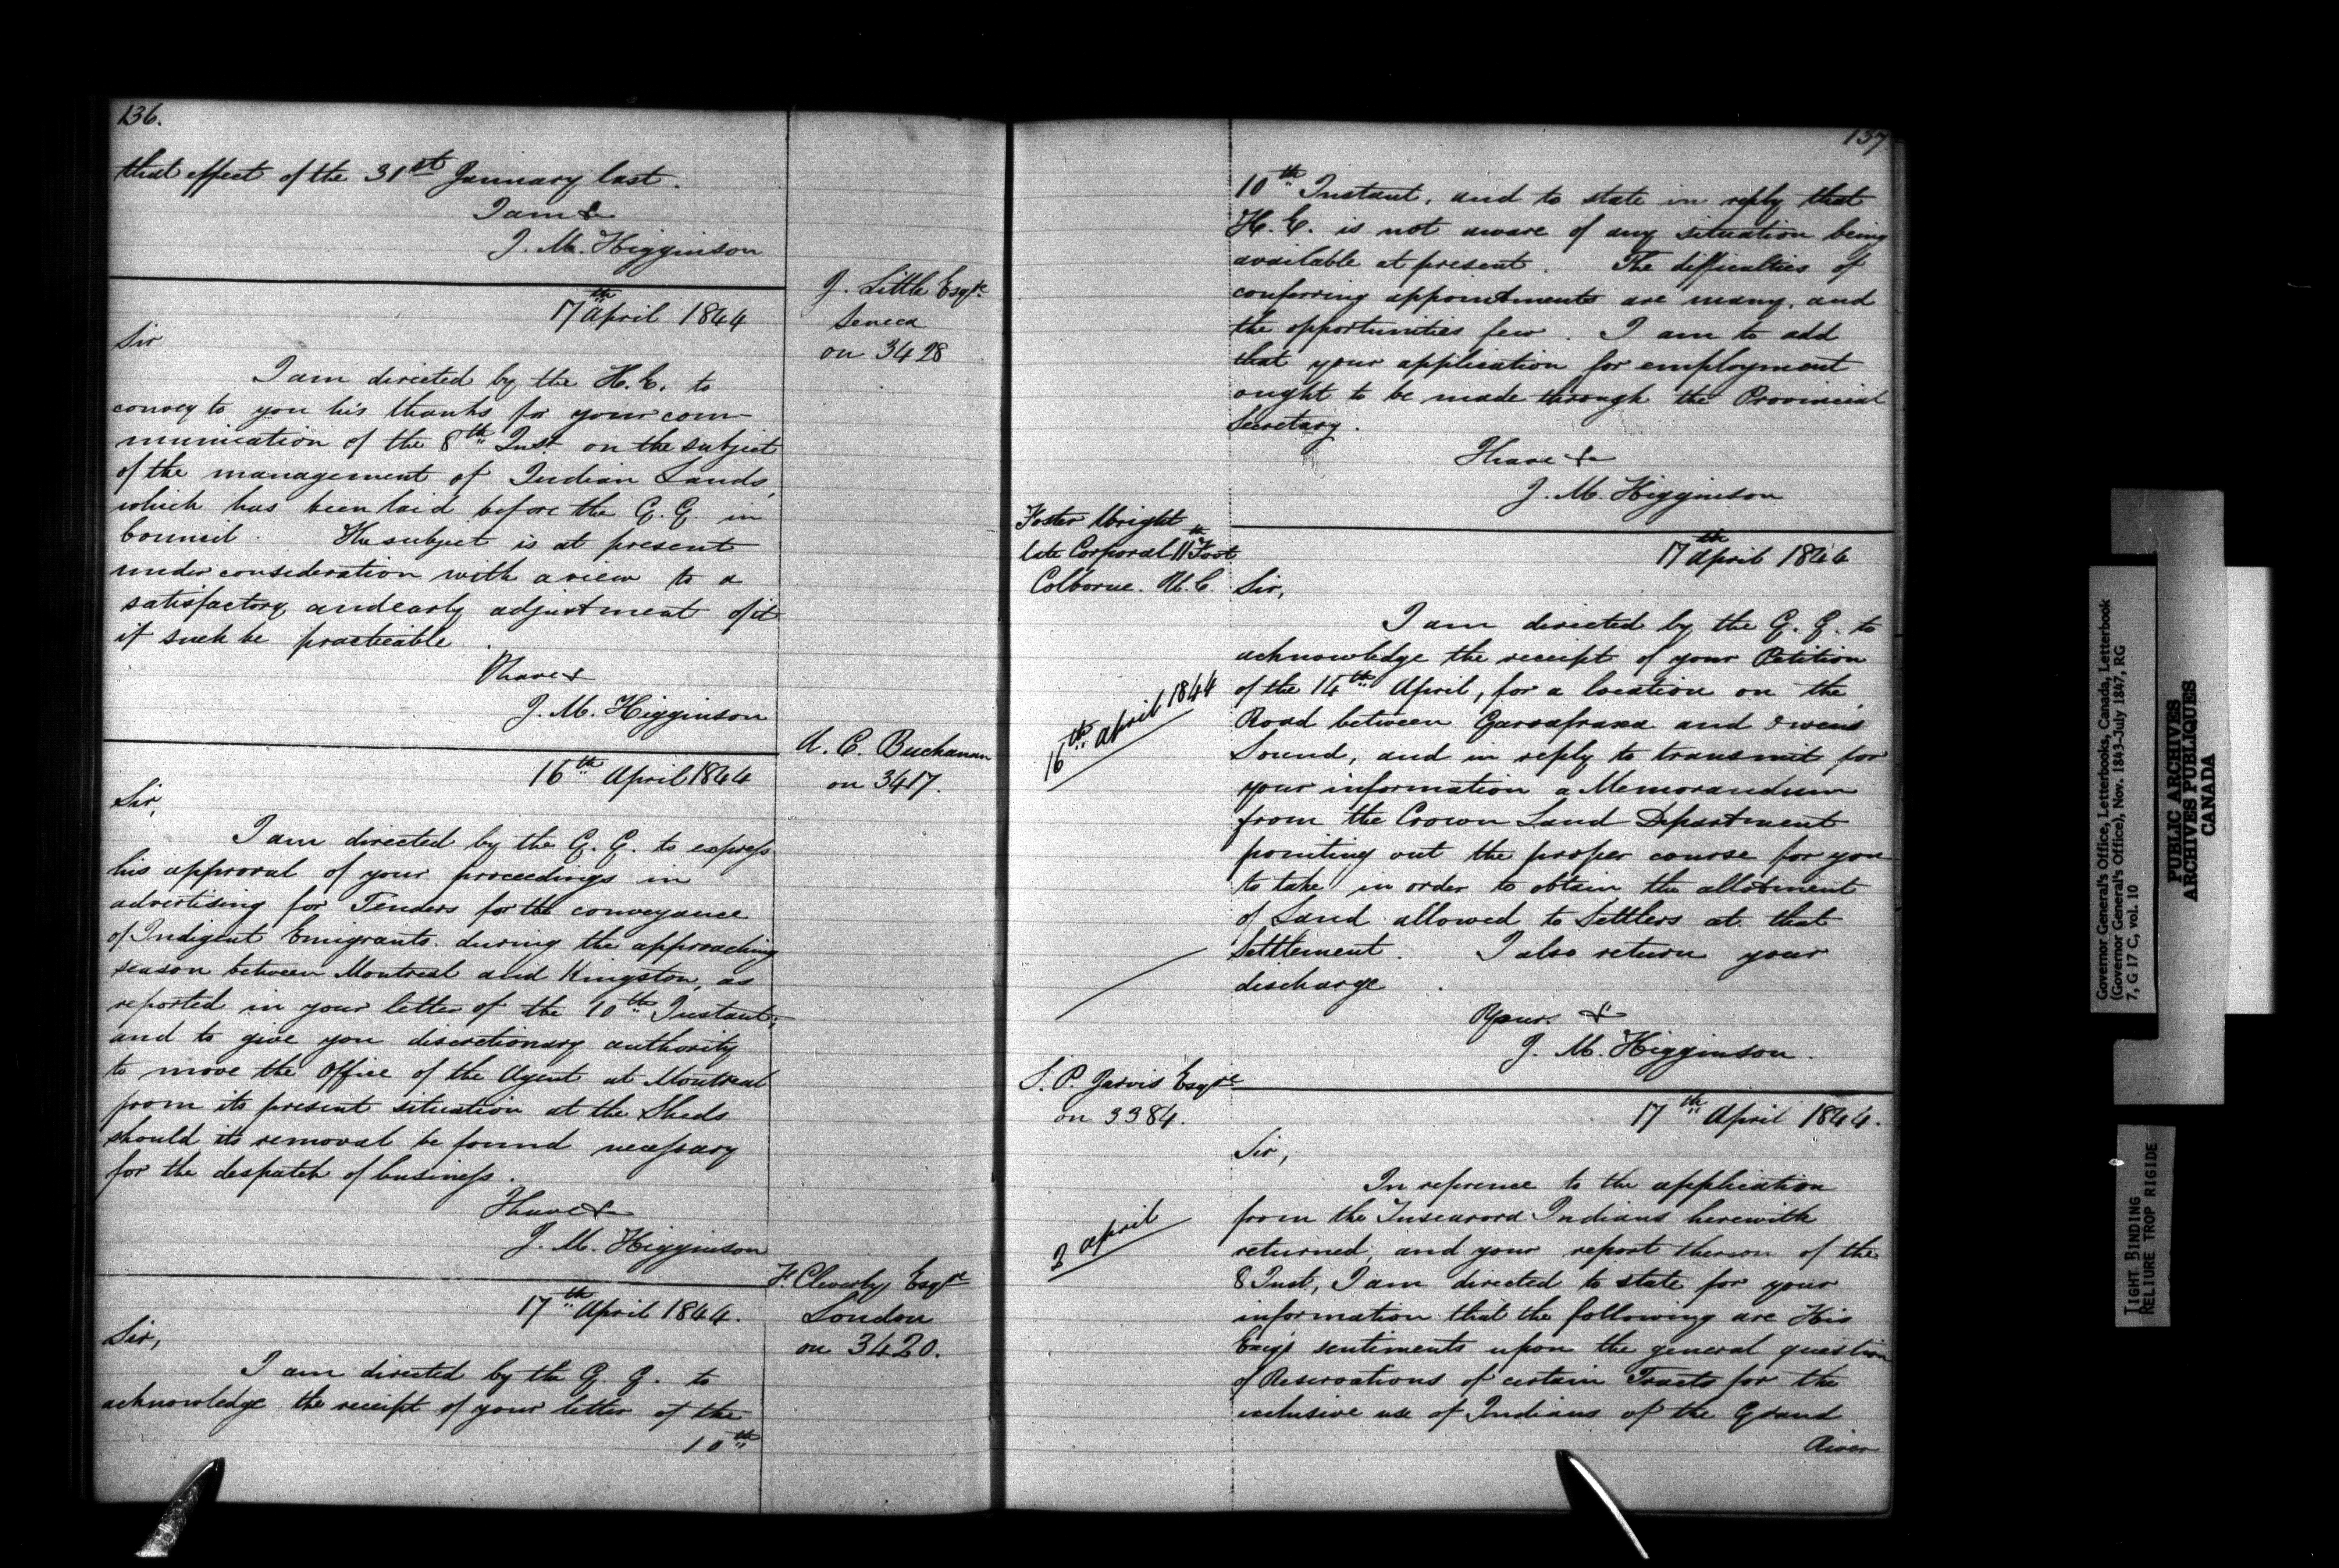 136.
that effect of the 31st January last.
I am &
J. M. Higginson
J. Little Esqre
Seneca
on 3428
17th April 1844
Sir
I am directed by the H. E. to
convey to you his thanks for your com-
munication of the 8th Inst. on the subject
of the management of Indian Lands,
which has been laid before the G. G. in
Council. The subject is at present
under consideration with a view to a
satisfactory and early adjustment of it
if such be practicable.
I have &
J. M. Higginson
A. C. Buchanan
on 3417.
16th April 1844
Sir,
I am directed by the G. G. to express
his approval of your proceedings in
advertising for Tenders for the conveyance
of Indigent Emigrants during the approaching
season between Montreal and Kingston, as
reported in your letter of the 10th Instant,
and to give you discretionary authority
to move the Office of the Agent at Montreal
from its present situation at the Sheds
should its removal be found necessary
for the despatch of business.
I have &
J. M. Higginson
F. Cleverly Esqre
London
on 3420.
17th April 1844.
Sir,
I am directed by the G. G. to
acknowledge the receipt of your letter of the
10th
137
10th Instant, and to state in reply that
H. E. is not aware of any situation being
available at present. The difficulties of
conferring appointments are many, and
the opportunities few. I am to add
that your application for employment
ought to be made through the Provincial
Secretary.
I have &
J. M. Higginson
Foster Wright
late Corporal 11th Foot
Colborne. U. C.
17th April 1844
Sir,
I am directed by the G. G. to
acknowledge the receipt of your Petition
of the 14th April, for a location on the
Road between Garrafraxa and Owens
Sound, and in reply to transmit for
your information a Memorandum
from the Crown Land Department
pointing out the proper course for you
to take in order to obtain the allotment
of Land allowed to Settlers at that
Settlement. I also return your
discharge.
16th April 1844
Yours &
J. M. Higginson.
S. P. Jarvis Esqre
on 3384.
17th April 1844.
Sir,
In reference to the application
from the Tuscarora Indians herewith
returned, and your report thereon of the
8 Inst, I am directed to state for your
information that the following are His
Excys sentiments upon the general question
of Reservations of certain Tracts for the
exclusive use of Indians of the Grand
River
April
Governor General's Office, Letterbooks, Canada, Letterbook
(Governor General's Office), Nov. 1843-July 1847, RG
7, G 17 C, vol. 10
PUBLIC ARCHIVES
ARCHIVES PUBLIQUES
CANADA
TIGHT BINDING
RELIURE TROP RIGIDE